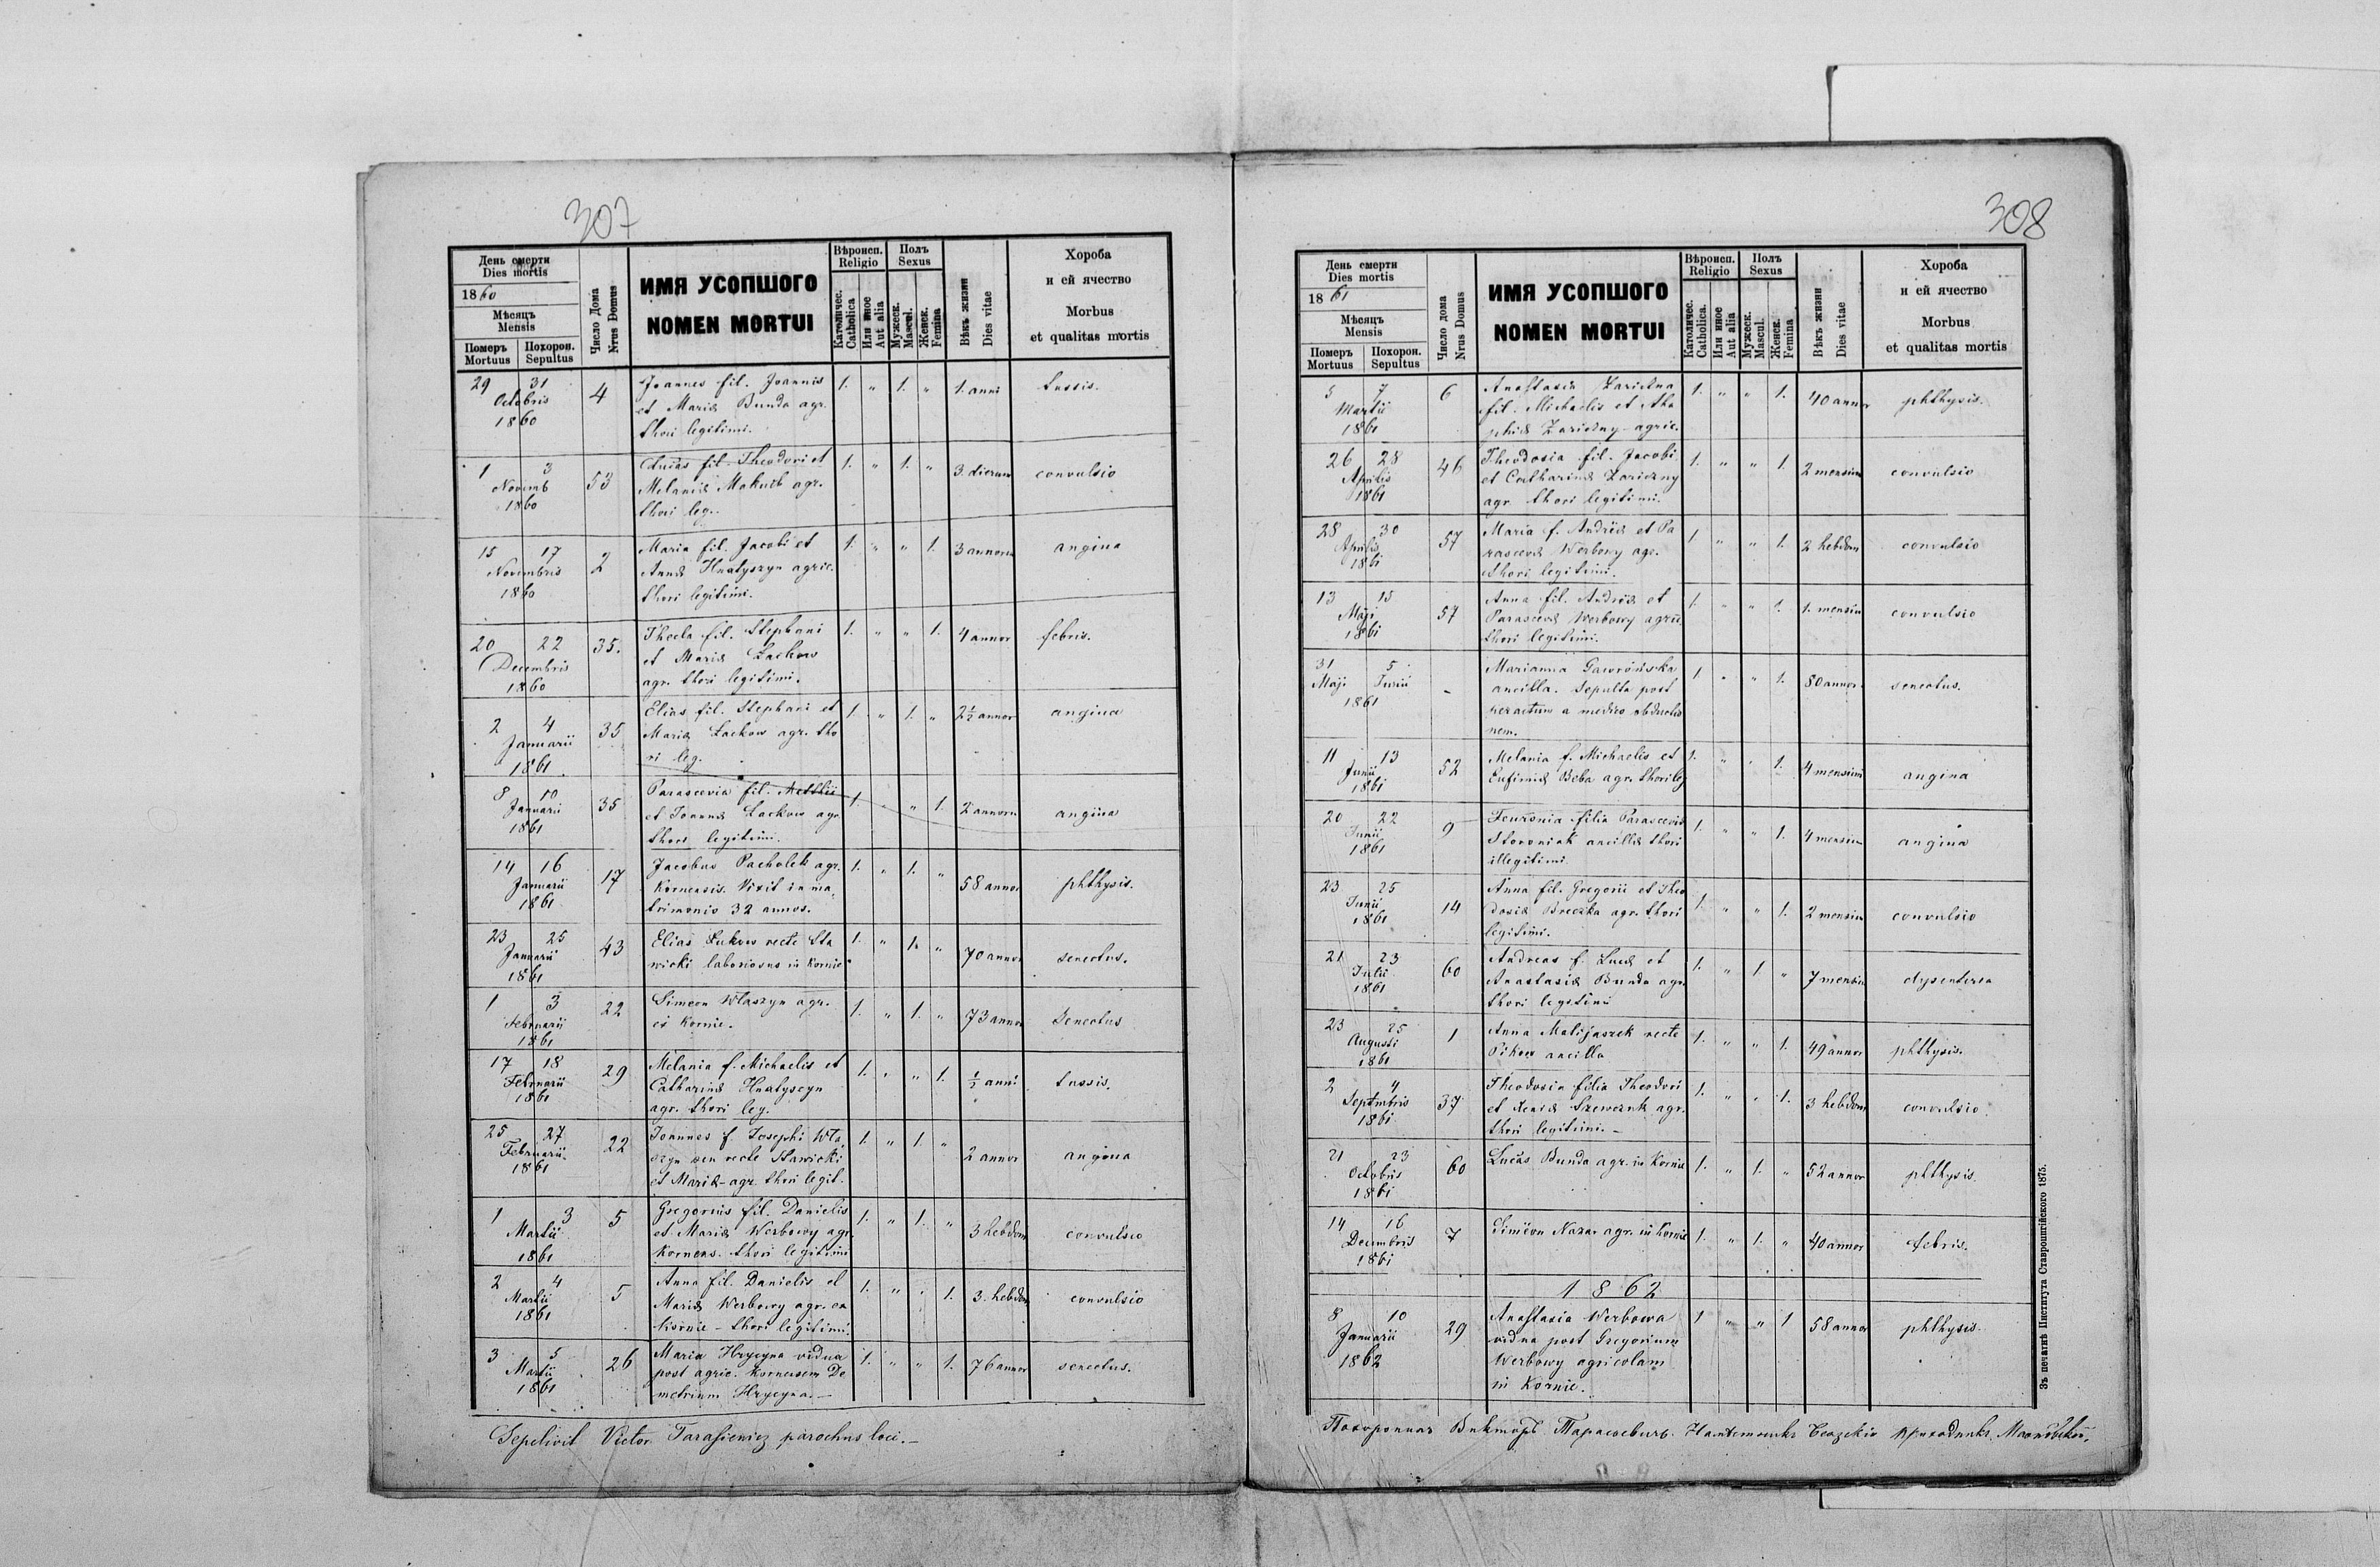 307
День смерти
Dies mortis
1860
Мѣсяцъ
Mensis
Померъ Mortuus
Похорон. Sepultus
Число Дома
Nrus Domus
ИМЯ УСОПШОГО
NOMEN MORTUI
Вѣроисп.
Religio
Католичес.
Catholica
Или иное
Aut alia
Полъ
Sexus
Мужеск.
Mascul.
Женск.
Femina
Вѣкъ жизни
Dies vitae
Хороба
и ей ячество
Morbus
et qualitas mortis
29 31 4 Joannes fil. Joannis 1. " 1. " 1. anni tussis.
Octobris et Mariæ Bunda agr.
1860 thori legitimi.
1 3 53 Lucas fil. Theodori et 1. " 1. " 3. dierum convulsio
Novemb Melaniæ agr.
1860 thori leg.
15 17 2 Maria fil. Jacobi et 1. " " 1. 3 annorum angina
Novembris Annæ Hnatyszyn agric.
1860 thori legitimi.
20 22 35. Thecla fil. Stephani 1. " " 1. 4 annor febris.
Decembris et Mariæ Lackow
1860 agr. thori legitimi.
2 4 35 Elias fil. Stephani et 1. " 1. " 2½ annor angina
Januarii Mariæ Lackow agr. tho
1861 ri leg.
8 10 35 Parascevia fil. 1. " " 1. 2 annoru angina
Januarii et Joannæ Lackow agr.
1861 thori legitimi.
14 16 17 Jacobus Pacholek agr. 1. " 1. " 58 annor phthysis.
Januarii Kornensis. Vixit in ma
1861 trimonio 32 annos.
23 25 43 Elias Lukow recte Sta 1. " 1. " 70 annor senectus.
Januarii wicki laboriosus in Kornie
1861
1 3 22 Simeon Właszyn agr. 1. " 1. " 73 annor Senectus
Februarii ex Kornie.
1861
17 18 29 Melania f. Michaelis et 1. " " 1. ½ anni tussis.
Februarii Catharinæ Hnatyszyn
1861 agr. thori leg.
25 27 22 Joannes f. Josephi Wła 1. " 1. " 2 annor angina
Februarii szyn seu recte Stawicki
1861 et Mariæ - agr. thori legit.
1 3 5 Gregorius fil. Danielis 1. " 1. " 3 hebdom convulsio
Martii et Mariæ Werbowy agr.
1861 Kornens. thori legitimi
2 4 5 Anna fil. Danielis et 1. " " 1. 3. hebdom convulsio
Martii Mariæ Werbowy agr. ex
1861 Kornie - thori legitimi.
3 5 26 Maria Hrycyna vidua 1. " " 1. 76 annor senectus.
Martii post agric. Kornensem De
1861 metrium Hrycyna. -
Sepelivit Victor Tarasiewicz parochus loci. -
308
День смерти
Dies mortis
1861
Мѣсяцъ
Mensis
Померъ Mortuus
Похорон. Sepultus
Число дома
Nrus Domus
ИМЯ УСОПШОГО
NOMEN MORTUI
Вѣроисп.
Religio
Католичес.
Catholica.
Или иное
Aut alia
Полъ
Sexus
Мужеск.
Mascul.
Женск.
Femina
Вѣкъ жизни
Dies vitae
Хороба
и ей ячество
Morbus
et qualitas mortis
5 7 6 Anastasia Zariczna 1. " " 1. 40 annor phthysis.
Martii fil. Michaelis et Aga
1861 phiæ Zariczny agric.
26 28 46 Theodosia fil. Jacobi 1. " " 1. 2 mensium convulsio
Aprilis et Catharinæ Zariczny
1861 agr. thori legitimi.
28 30 57 Maria f. Andreæ et Pa 1 " " 1. 2 hebdom convulsio
Aprilis rascevæ Werbowy agr.
1861 thori legitimi.
13 15 57 Anna fil. Andreæ et 1. " " 1. 1. mensium convulsio
Maji Parascevæ Werbowy agric.
1861 thori legitimi.
31 5 - Marianna Gawrońska 1 " " 1. 80 annor. senectus.
Maji Junii ancilla. Sepulta post
1861 peractum a medico obductio
nem.
11 13 52 Melania f. Michaelis et 1. " " 1. 4 mensium angina
Junii Eufimiæ Beba agr. thori leg
1861
20 22 9 Feuronia filia Parasceviæ 1. " " 1. 4 mensium angina
Junii ancillæ thori
1861 illegitimi.
23 25 14 Anna fil. Gregorii et Theo 1. " " 1. 2 mensium convulsio
Junii dosiæ Breczka agr. thori
1861 legitimi.
21 23 60 Andreas f. Lucæ et 1. " 1. " 7 mensiu dysenteria
Julii Anastasiæ Bunda agr.
1861 thori legitimi
23 25 1 Anna Matijaszek recte 1. " " 1. 49 annor phthysis.
Augusti Pikow ancilla
1861
2 4 37 Theodosia filia Theodori 1. " " 1. 3 hebdom convulsio.
Septembris et Xeniæ Szewczuk agr.
1861 thori legitimi. -
21 23 60 Lucas Bunda agr. in Kornie 1. " 1. " 52 annor phthysis.
Octobris
1861
14 16 7 Simeon Nazar agr. in Kornie 1. " 1. " 40 annor febris.
Decembris
1861
1862
8 10 29 Anastasia Werbowa 1 " " 1 58 annor phthysis.
Januarii vidua post Gregorium
1862 Werbowy agricolam
in Kornie.
Викторъ Тарасевичъ.
Зъ печатнѣ Института Ставропигійского 1875.